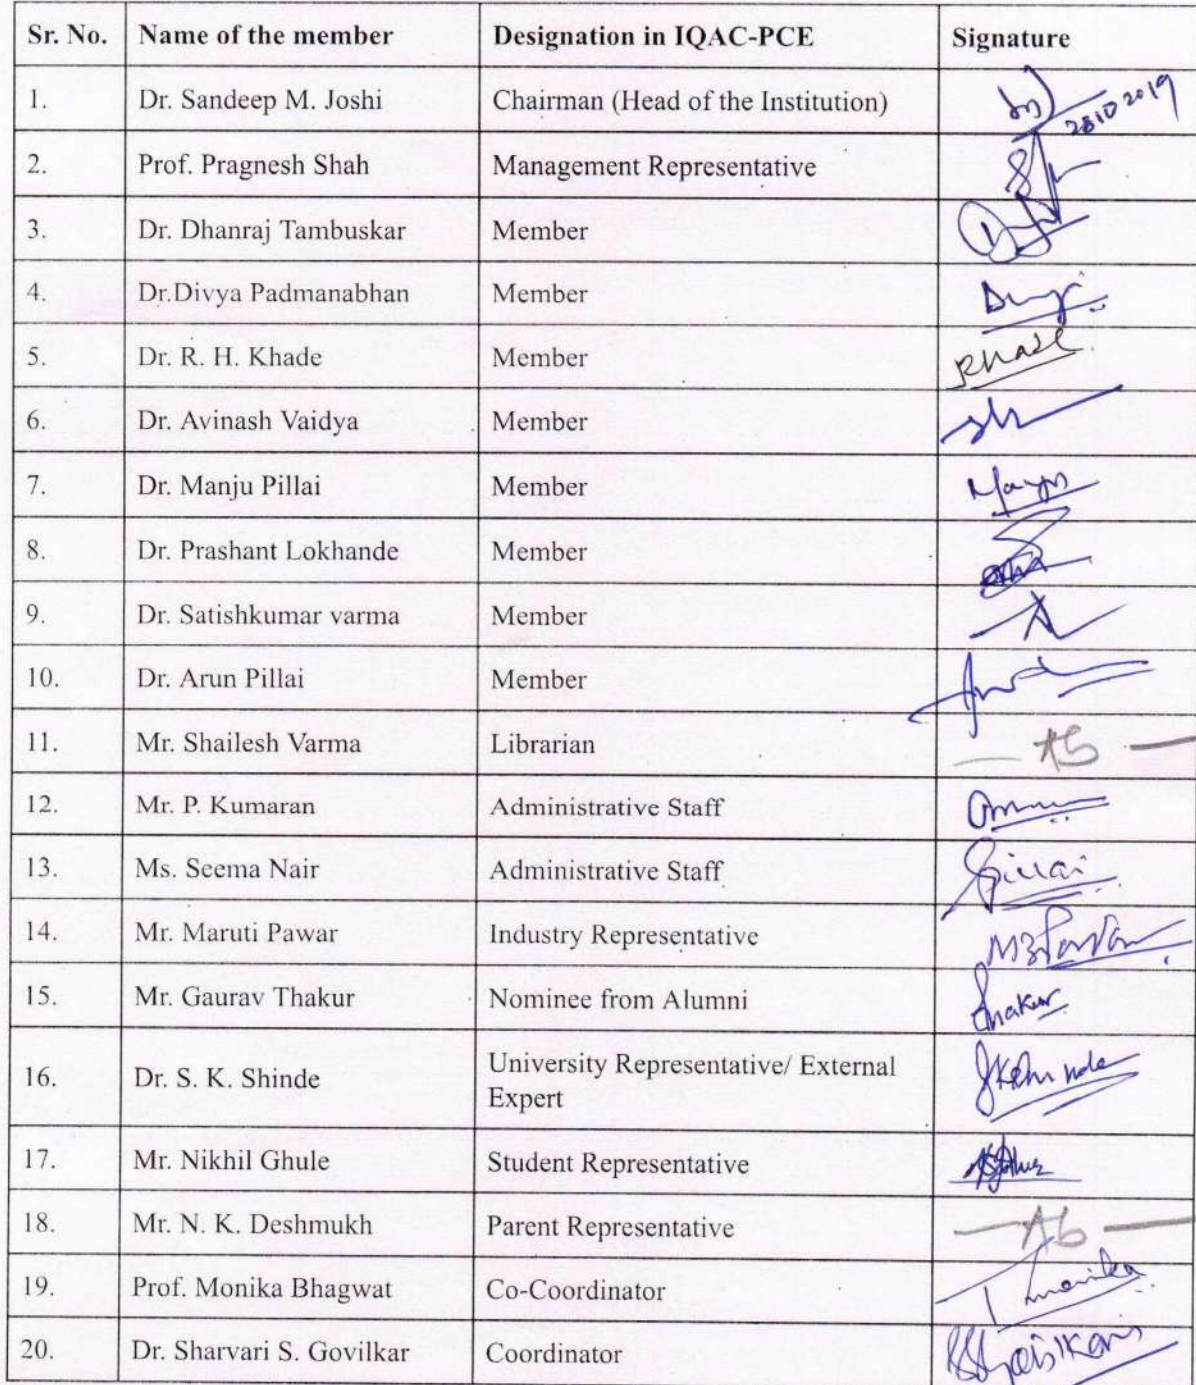 Sr. No. Name of the member Designation in IQAC-PCE Signature
1. Dr. Sandeep M. Joshi Chairman (Head of the Institution) 28102019
2. Prof. Pragnesh Shah Management Representative
3. Dr. Dhanraj Tambuskar Member
4. Dr.Divya Padmanabhan Member
5. Dr. R. H. Khade Member
6. Dr. Avinash Vaidya Member
7. Dr. Manju Pillai Member
8. Dr. Prashant Lokhande Member
9. Dr. Satishkumar varma Member
10. Dr. Arun Pillai Member
11. Mr. Shailesh Varma Librarian
12. Mr. P. Kumaran Administrative Staff
13. Ms. Seema Nair Administrative Staff
14. Mr. Maruti Pawar Industry Representative
15. Mr. Gaurav Thakur Nominee from Alumni
16. Dr. S. K. Shinde University Representative/ External
Expert
17. Mr. Nikhil Ghule Student Representative
18. Mr. N. K. Deshmukh Parent Representative Ab
19. Prof. Monika Bhagwat Co-Coordinator
20. Dr. Sharvari S. Govilkar Coordinator